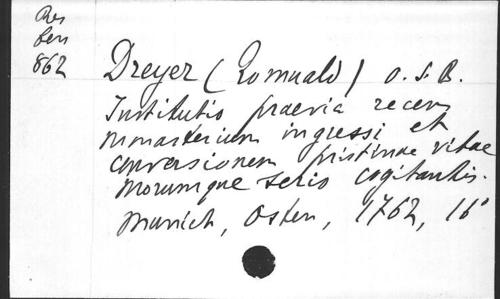 Res
ben
862
Dreyer (Romuald) O.S.B.
Institutio praevia recens
monasterium ingressi et
conversionem pristinae vitae
morumque serio cogitantis.
Munich, Osten, 1762, 16°